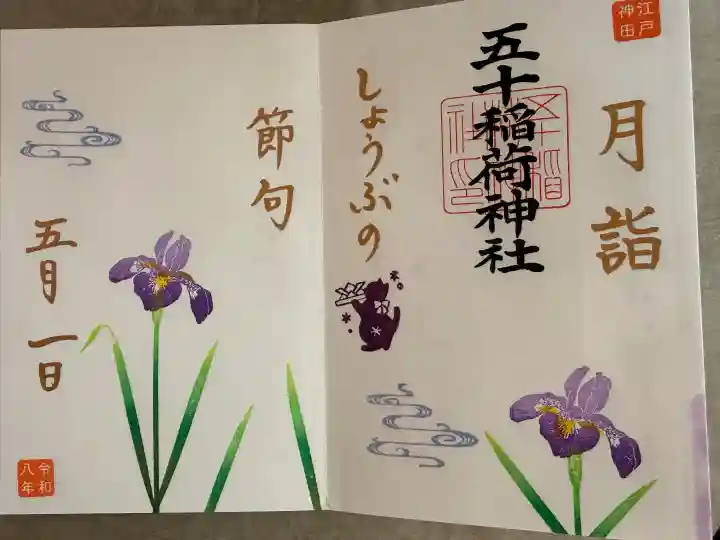 江戸
神田
月詣
五十稲荷神社
しょうぶの
節句
五月一日
令和
八年